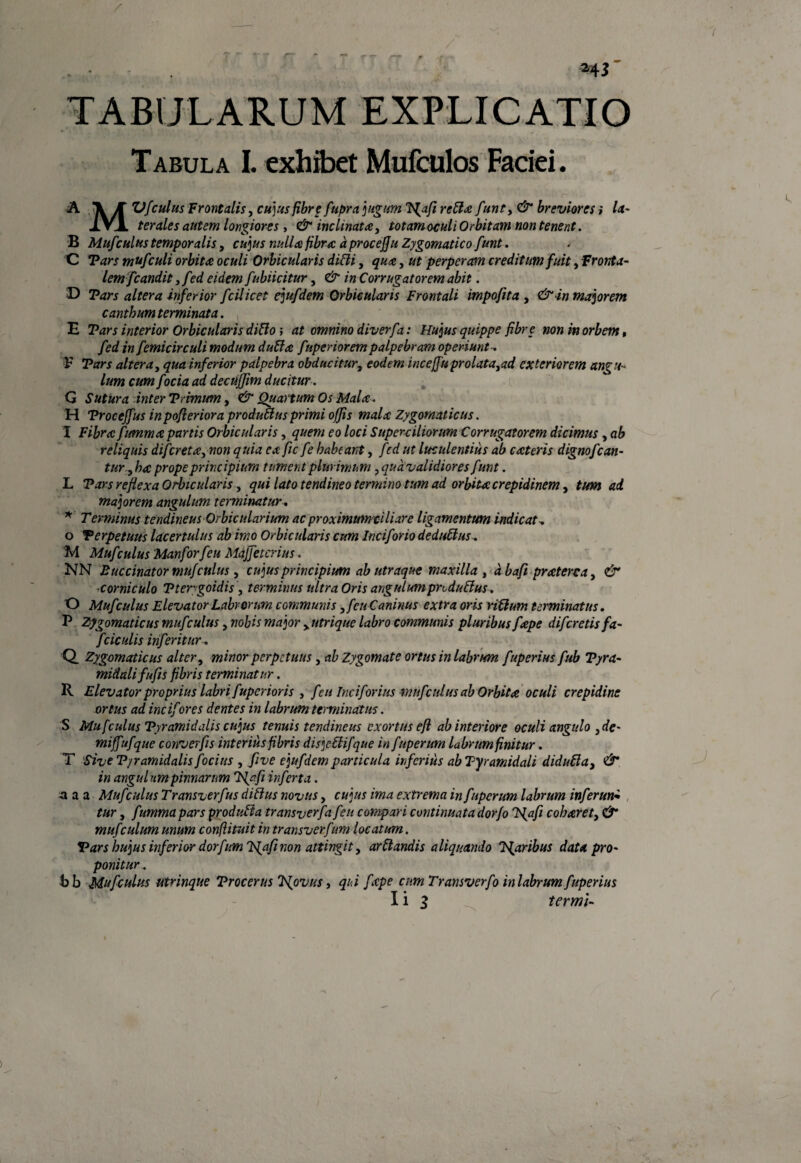 243
TABULARUM EXPLICATIO
TABULA I. exhibet Muſculos Faciei.
A MUſculus Frontalis, cujus fibrę ſupra jugum Naſi rectæ ſunt, & breviores; la-
terales autem longiores, & inclinatæ, totam oculi Orbitam non tenent.
B Muſculus temporalis, cujus nullæ fibræ à proceſſu Zygomatico ſunt.
C Pars muſculi orbitæ oculi Orbicularis dicti, quæ, ut perperam creditum fuit, Fronta-
lem ſcandit, ſed eidem ſubiicitur, & in Corrugatorem abit.
D Pars altera inferior ſcilicet ejuſdem Orbicularis Frontali impoſita, & in majorem
canthum terminata.
E Pars interior Orbicularis dicto; at omnino diverſa: Hujus quippe fibrę non in orbem,
ſed in ſemicirculi modum ductæ ſuperiorem palpebram operiunt.
F Pars altera, qua inferior palpebra obducitur, eodem inceſſu prolata, ad exteriorem angu-
lum cum ſocia ad decuſſim ducitur.
G Sutura inter Primum, & Quartum Os Malæ.
H Proceſſus in poſteriora productus primi oſſis malæ Zygomaticus.
I Fibræ ſummæ partis Orbicularis, quem eo loci Superciliorum Corrugatorem dicimus, ab
reliquis diſcretæ, non quia eæ ſic ſe habeant, ſed ut luculentiùs ab cæteris dignoſcan-
tur, hæ prope principium tument plurimum, quà validiores ſunt.
L Pars reflexa Orbicularis, qui lato tendineo termino tum ad orbitæ crepidinem, tum ad
majorem angulum terminatur.
* Terminus tendineus Orbicularium ac proximum ciliare ligamentum indicat.
o Perpetuus lacertulus ab imo Orbicularis cum Inciſorio deductus.
M Muſculus Manſor ſeu Maſſeterius.
NN Buccinator muſculus, cujus principium ab utraque maxilla, à baſi præterea, &
corniculo Pterygoidis, terminus ultra Oris angulum productus.
O Muſculus Elevator Labrorum communis, ſeu Caninus extra oris rictum terminatus.
P Zygomaticus muſculus, nobis major, utrique labro communis pluribus ſæpe diſcretis fa-
ſciculis inſeritur.
Q Zygomaticus alter, minor perpetuus, ab Zygomate ortus in labrum ſuperius ſub Pyra-
midali fuſis fibris terminatur.
R Elevator proprius labri ſuperioris, ſeu Inciſorius muſculus ab Orbitæ oculi crepidine
ortus ad inciſores dentes in labrum terminatus.
S Muſculus Pyramidalis cujus tenuis tendineus exortus eſt ab interiore oculi angulo, de-
miſſuſque converſis interiùs fibris disjectiſque in ſuperum labrum finitur.
T Sive Pyramidalis ſocius, ſive ejuſdem particula inferiùs ab Pyramidali diducta, &
in angulum pinnarum Naſi inſerta.
a a a Muſculus Transverſus dictus novus, cujus ima extrema in ſuperum labrum inſerun-
tur, ſumma pars producta transverſa ſeu compari continuata dorſo Naſi cohæret, &
muſculum unum conſtituit in transverſum locatum.
Pars hujus inferior dorſum Naſi non attingit, arctandis aliquando Naribus data pro-
ponitur.
b b Muſculus utrinque Procerus Novus, qui ſæpe cum Transverſo in labrum ſuperius
Ii 3 termi-